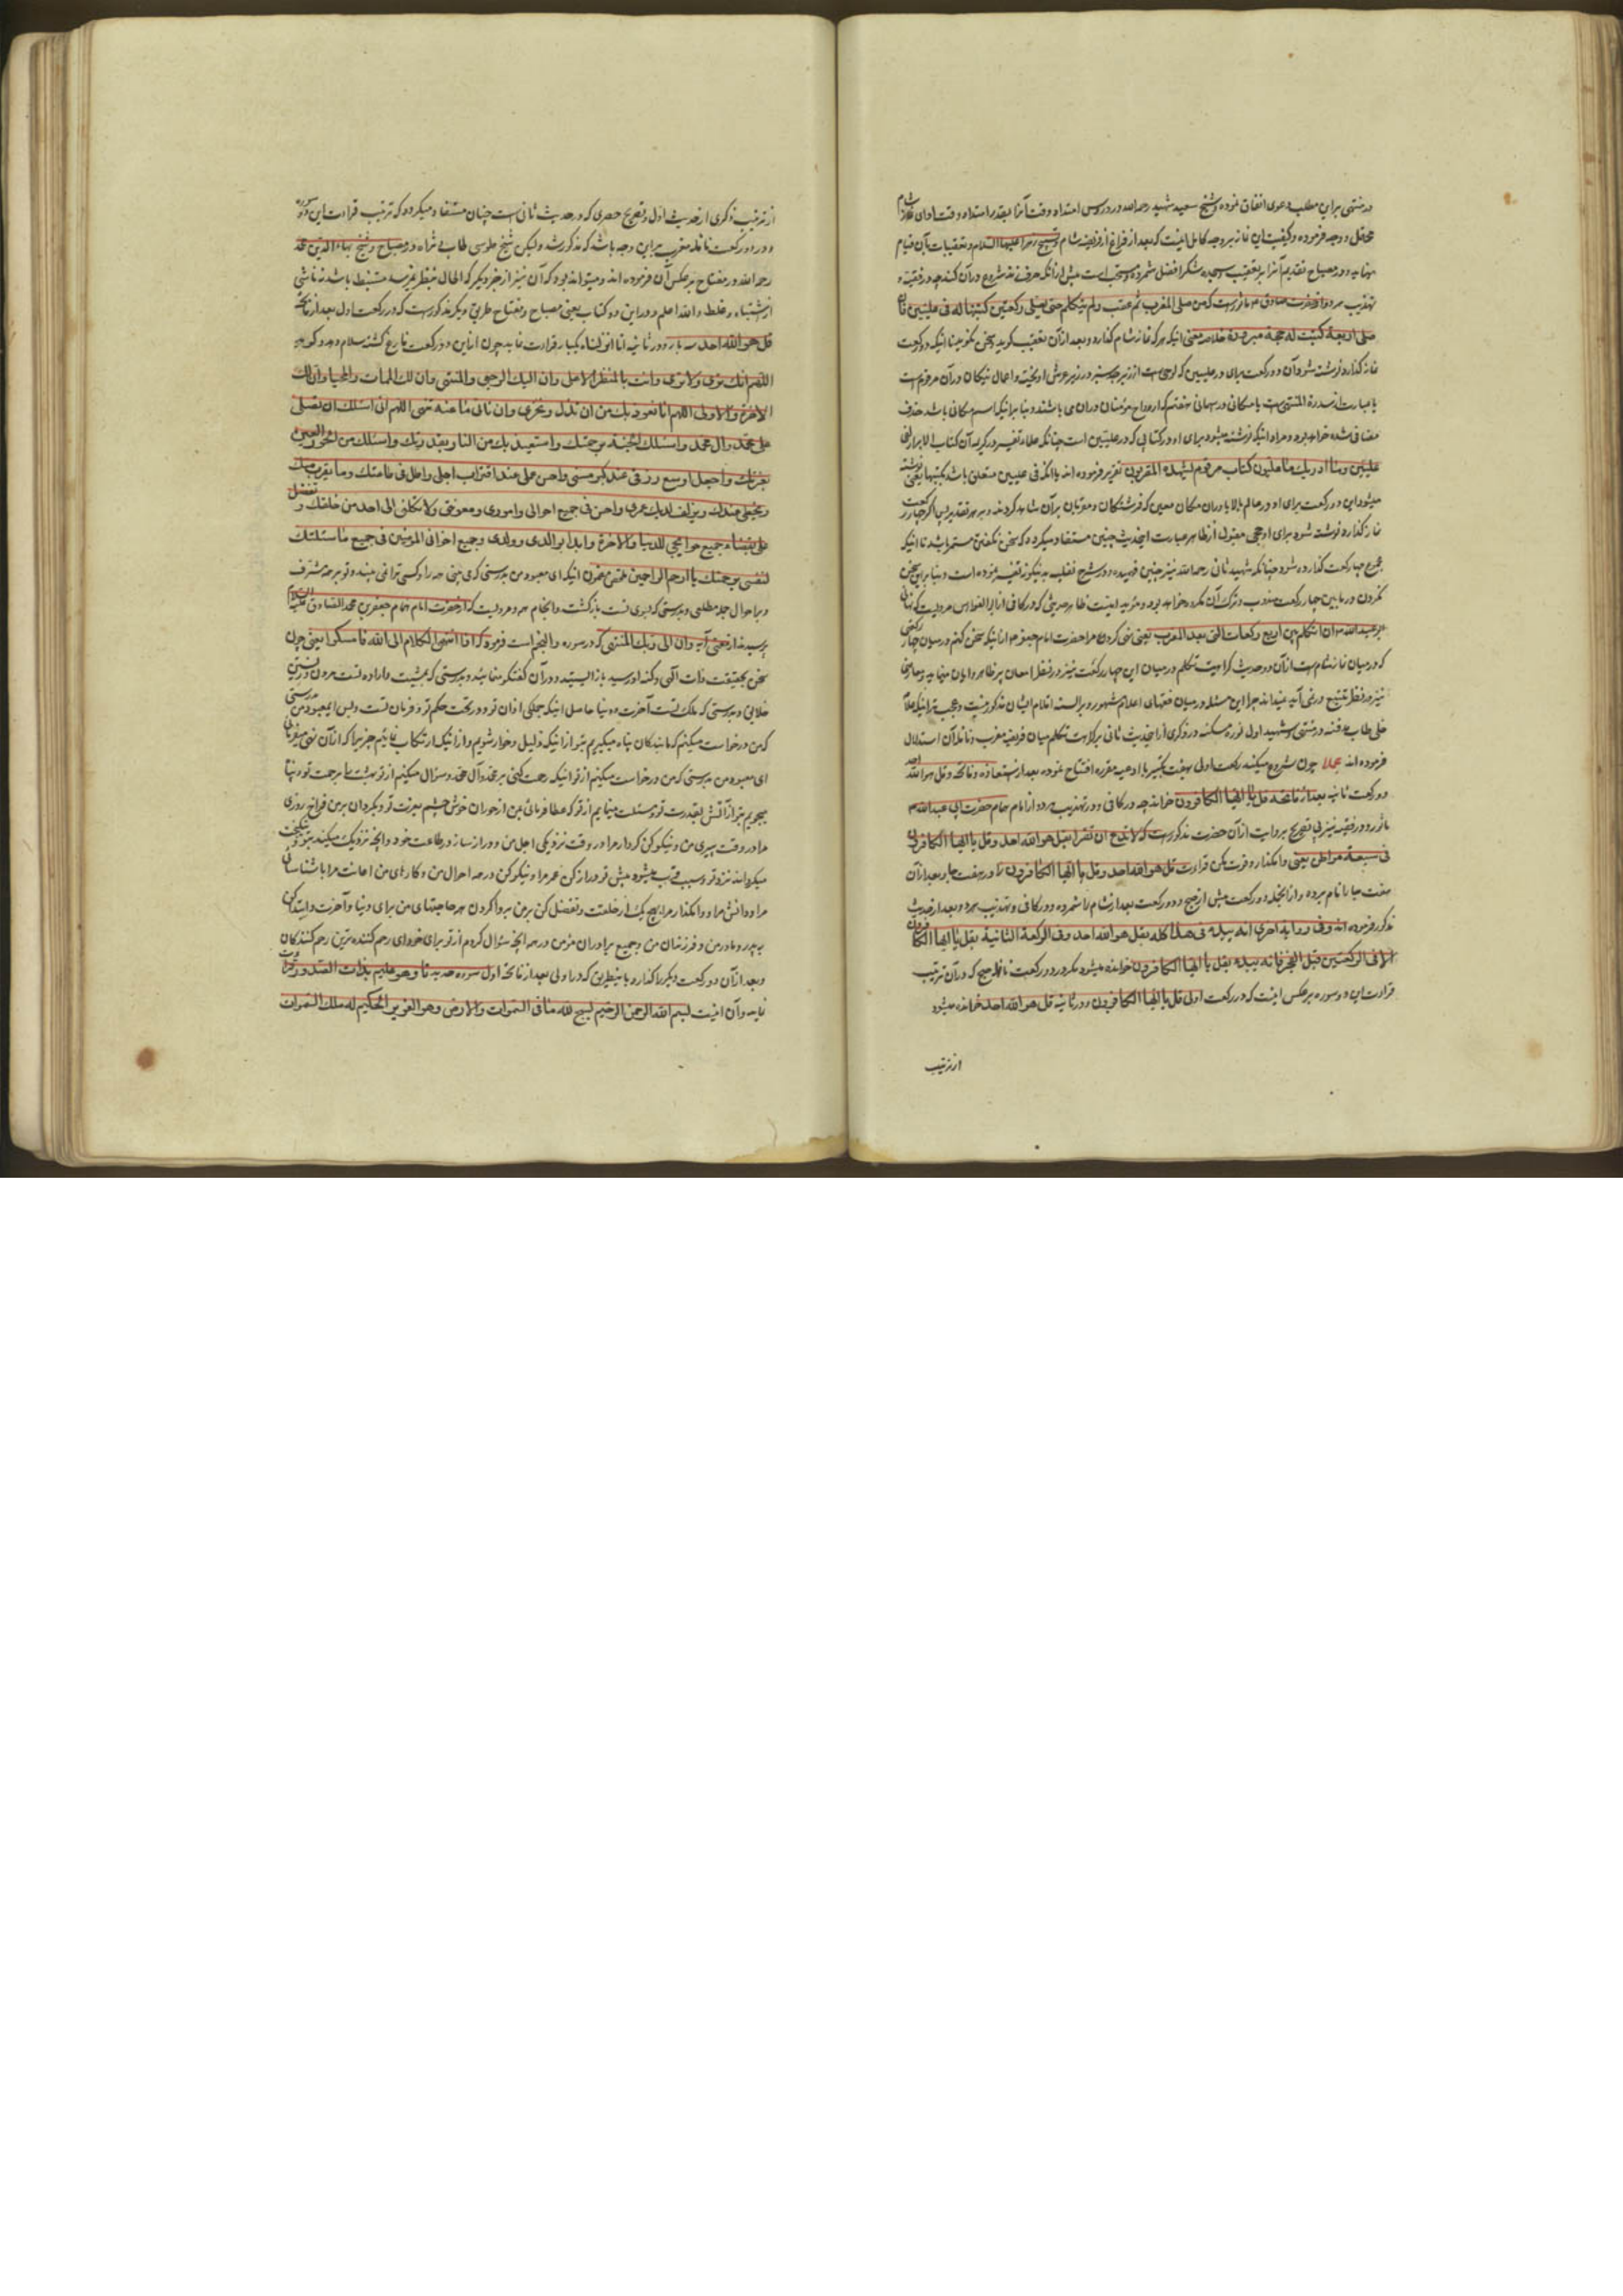 در منتهی برای این مطلب دعوی اتفاق نموده و شیخ سعید شهید رحمه الله در دروس امتداد وقت آنرا بقدر امتداد وقت ادای نماز شام
محتمل دو وجه فرموده و کیفیت این نماز بر وجه کامل اینست که بعد از فراغ از فریضه شام و تسبیح زهرا علیها السلام و تعقیبات بآن قیام
نماید و در مصباح تقدیم آنرا بر تعقیب سجده شکر افضل شمرده و مستحب است پیش از آنکه حرف زند شروع در آن کند چه در فقیه و
تهذیب مروی از حضرت صادق م ماثور است که من صلی المغرب ثم عقب ولم یتکلم حتی یصلی رکعتین کتبتا له فی علیین فان
صلی اربعة کتبت له حجة مبرورة خلاصه معنی اینکه هر که نماز شام گذارد و بعد از آن تعقیب کرید و سخن نکوید تا اینکه دو رکعت
نماز گذارد نوشته شود آن دو رکعت برای او در علیین که لوحی است از زبرجد سبز در زیر عرش اویخته و اعمال نیکان در آن مرقوم است
یا عبارت از سدرة المنتهی است یا مکانی در سمای هفتم که ارواح مؤمنان در ان می باشند و بنا بر اینکه اسم مکانی باشد حذف
مضافی شده خواهد بود و مراد اینکه نوشته میشود برای او در کتابی که در علیین است چنانکه علماء تفسیر در کریمه ان کتاب الابرار لفی
علیین وما ادریك ما علیون کتاب مرقوم یشهده المقربون تقریر فرموده اند یا آنکه فی علیین متعلق باشد بکتبتا یعنی نوشته
میشود این دو رکعت برای او در عالم بالا یا در ان مکان معین که فرشتکان و مقربان بر آن شاهد کردند و بر هر تقدیر پس اکر چهار رکعت
نماز گذارد نوشته شود برای او حجی مقبول از ظاهر عبارت اینحدیث چنین مستفاد میکردد که سخن نکفتن مستمر باشد تا اینکه
مجموع چهار رکعت گذارده شود چنانکه شهید ثانی رحمه الله نیز چنین فهمیده و در شرح نفلیه به نیکونه تفسیر نموده است و بنا بر این سخن
نکردن در ما بین چهار رکعت مندوب و ترک آن مکروه خواهد بود و مؤید اینست ظاهر حدیثی که در کافی از ابی الفوارس مرویست که نهانی
ابو عبد الله م ان اتکلم بین اربع رکعات التی بعد المغرب یعنی نهی کرد مرا حضرت امام جعفر م از اینکه سخن کنم در میان چهار رکعتی
که در میان نماز شام است از آن دو حدیث کراهیت تکلم در میان این چهار رکعت نیز در نظر امعان پر ظاهر و ایان مینماید و معارضی
نیز در نظر تتبع در نمی آید نمیداند چرا این مسئله در میان فقهای اعلام مشهور و بر السنه اقلام ایشان مذکور نیست و عجب تر اینکه علامه
حلی طاب مرقده در منتهی و شهید اول نور مسکنه در ذکری از اینحدیث ثانی بر کراهت تکلم میان فریضه مغرب و نافله آن استدلال
فرموده اند عملا چون شروع میکند رکعت اولی بهفت تکبیر با ادعیه مقرره افتتاح نموده بعد از استعاذه و فاتحه و قل هو الله احد
و در رکعت ثانیه بعد از فاتحه قل یا ایها الکافرون خواند چه در کافی و در تهذیب مروی از امام همام حضرت ابی عبد الله م
ماثور و در فقیه نیز بی تصریح بروایت از آن حضرت مذکور است که لا تدع ان تقرا بقل هو الله احد وقل یا ایها الکافرون
فی سبعة مواطن یعنی وامکذار و فرت مکن قرائت قل هو الله احد وقل یا ایها الکافرون را در هفت جا و بعد از آن
هفت جا را نام برده و از انجمله دو رکعت پیش از صبح و دو رکعت بعد از شام را شمرده و در کافی و تهذیب بعد از حدیث
مذکور فرموده اند وفی روایة اخری انه یبدا فی هذا کله بقل هو الله احد وفی الرکعة الثانیة بقل یا ایها الکافرون
الا فی الرکعتین قبل الفجر فانه یبدا بقل یا ایها الکافرون خوانده میشود مکر در دو رکعت نافله صبح که در آن ترتیب
قرائت این دو سوره بر عکس اینست که در رکعت اولی قل یا ایها الکافرون و در ثانیه قل هو الله احد خوانده میشود
از ترتیب
از ترتیب ذکری از حدیث اول و تصریح حصری که در حدیث ثانی است چنان مستفاد میکردد که ترتیب قرائت این دو سوره
در دو رکعت نافله مغرب بر این وجه باشد که مذکور شد ولیکن شیخ طوسی طاب ثراه در مصباح و شیخ بهاء الدین محمد
رحمه الله در مفتاح بر عکس آن فرموده اند و میتواند بود که آن نیز از خبر دیکر که الحال بنظر نمیرسد مستنبط باشد نه ناشی
از اشتباه و غلط والله اعلم و در این دو کتاب یعنی مصباح و مفتاح طریق دیکر مذکور است که در رکعت اول بعد از فاتحه
قل هو الله احد سه بار و در ثانیه انا انزلناه یکبار قرائت نماید چون از این دو رکعت فارغ کشته سلام دهد و کوید
اللهم انك تری ولا تری وانت بالمنظر الاعلی وان الیك الرجعی والمنتهی وان لك الممات والمحیا وان لك
الاخرة والاولی اللهم انا نعوذ بك من ان نذل ونخزی وان ناتی ما عنه تنهی اللهم انی اسئلك ان تصلی
علی محمد وال محمد واسئلك الجنة برحمتك واستعیذ بك من النار بقدرتك واسئلك من الحور العین
بعزتك واجعل اوسع رزقی عند کبر سنی واحسن عملی عند اقتراب اجلی واطل فی طاعتك وما یقرب منك
ویحظی عندك ویزلف لدیك عمری واحسن فی جمیع احوالی واموری ومعونتی ولا تکلنی الی احد من خلقك و تفضل
علی بقضاء جمیع حوائجی للدنیا والاخرة وابدا بوالدی وولدی وجمیع اخوانی المؤمنین فی جمیع ما سئلتك
لنفسی برحمتك یا ارحم الراحمین ملخص مضمون اینکه ای معبود من بدرستی که می بینی همه را و کسی ترا نمی بیند و تو بر همه مشرف
و بر احوال جمله مطلعی و بدرستی که بسوی تست بازکشت و انجام همه و مرویست که از حضرت امام همام جعفر بن محمد الصادق علیه السلام
پرسیدند از معنی آیه وان الی ربك المنتهی که در سوره والنجم است فرمود که اذا انتهی الکلام الی الله فامسکوا یعنی چون
سخن بحقیقت ذات آلهی وکنه او رسید باز ایستید و در آن کفتکو منمائید و بدرستی که بمشیت و اراده تست مردن و زیستن
خلایق و بدرستی که ملک تست آخرت و دنیا حاصل اینکه جملکی از ان تو و در تحت حکم تو و فرمان تست و بس ای معبود من بدرستی
که من درخواست میکنم که ما بندکان پناه میکیریم بتو از اینکه ذلیل و خوار شویم و از اینکه ارتکاب نمائیم چیزیرا که از آن نهی میفرمائی
ای معبود من بدرستی که من درخواست میکنم از تو اینکه رحمت کنی بر محمد وآل محمد و سؤال میکنم از تو بهشت را برحمت تو و پناه
میجویم بتو از آتش بقدرت تو و مسئلت مینمایم از تو که عطا فرمائی بمن از حوران خوش چشم بعزت تو و بکردان بر من فراخ روزی
مرا در وقت پیری من و نیکو کن کردار مرا در وقت نزدیکی اجل من و دراز ساز در طاعت خود و انچه نزدیک میکند بتو و نیکبخت
میکرداند نزد تو و سبب قرب میشود پیش تو دراز کن عمر مرا و نیکو کن در همه احوال من و کارهای من اعانت مرا با شناسائی
مرا و دانش مرا و وامکذار مرا بهیچ یک از خلقت و تفضل کن بر من بروا کردن هر حاجتهای من برای دنیا و آخرت و ابتدا کن
به پدر و مادر من و فرزندان من و جمیع برادران مؤمن در همه انچه سؤال کردم از تو برای خود ای رحم کننده ترین رحم کنندکان
و بعد از آن دو رکعت دیکر را کذارد باینطریق که در اولی بعد از فاتحه اول سوره حدید تا وهو علیم بذات الصدور قرائت
نماید و آن اینست بسم الله الرحمن الرحیم سبح لله ما فی السموات والارض وهو العزیز الحکیم له ملك السموات